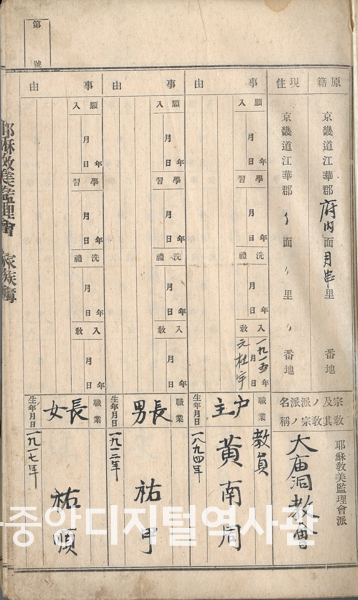 第 號
原籍 京畿道江華郡 府内面 月串里 番地
現住 京畿道江華郡 〃面 〃里 〃番地
宗教及其ノ教宗派ノ名稱
耶穌教美監理會派
大廟洞教會
事由
願入 年月日
學習 年月日
洗禮 年月日
入教 一九一五年
元杜宇
職業 教員
戶主 黃南
生年月日 一八九四年
事由
願入 年月日
學習 年月日
洗禮 年月日
入教 年月日
職業
長男 祐
生年月日 一九一二年
事由
願入 年月日
學習 年月日
洗禮 年月日
入教 年月日
職業
長女 祐順
生年月日 一九一七年
耶穌教美監理會 家族簿
중앙디지털역사관